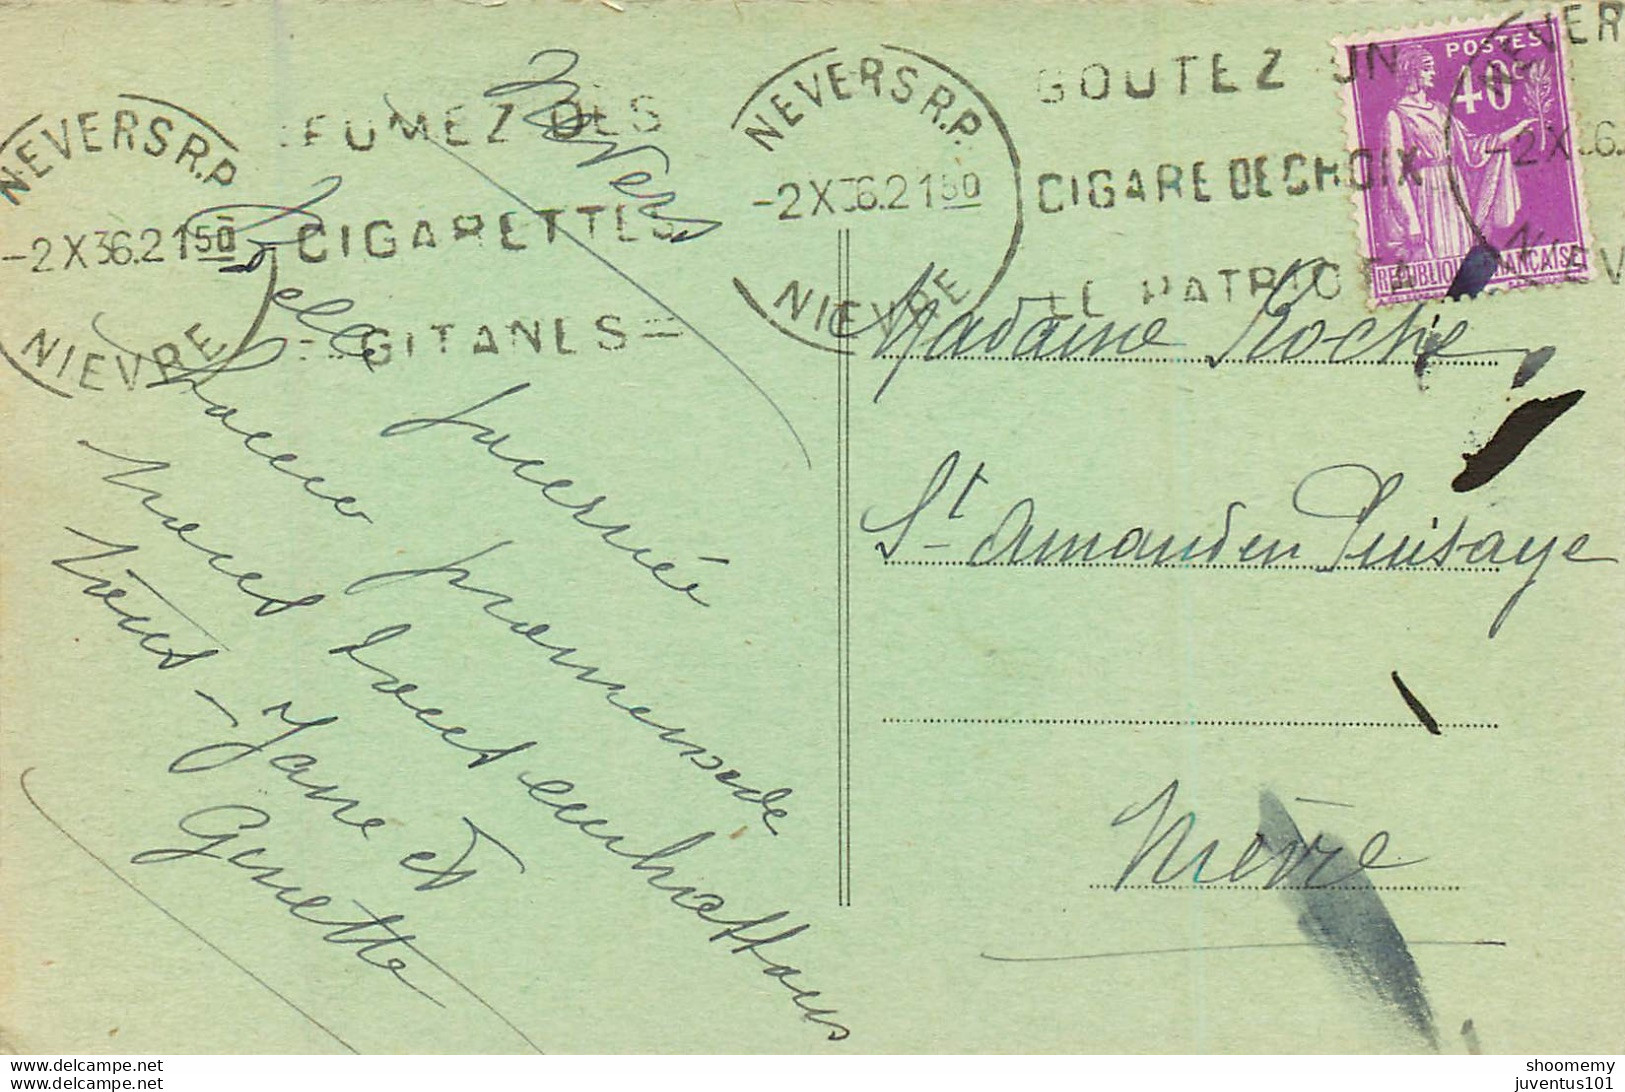 NEVERS R.P.
-2 X 36. 21 50
NIEVRE
FUMEZ DES
CIGARETTES
GITANES
NEVERS R.P.
-2 X 36. 21 50
NIEVRE
GOUTEZ UN
CIGARE DE CHOIX
LE PATRIOTA
NEVER
-2 X 36.
NIEV
POSTES
40c
REPUBLIQUE FRANÇAISE
Nevers
Belle journée
bonne promenade
nous vous embrassons
tous - Jane et
Ginette
Madame Roche
St Amand en Puisaye
Nièvre
shoomemy
juventus101